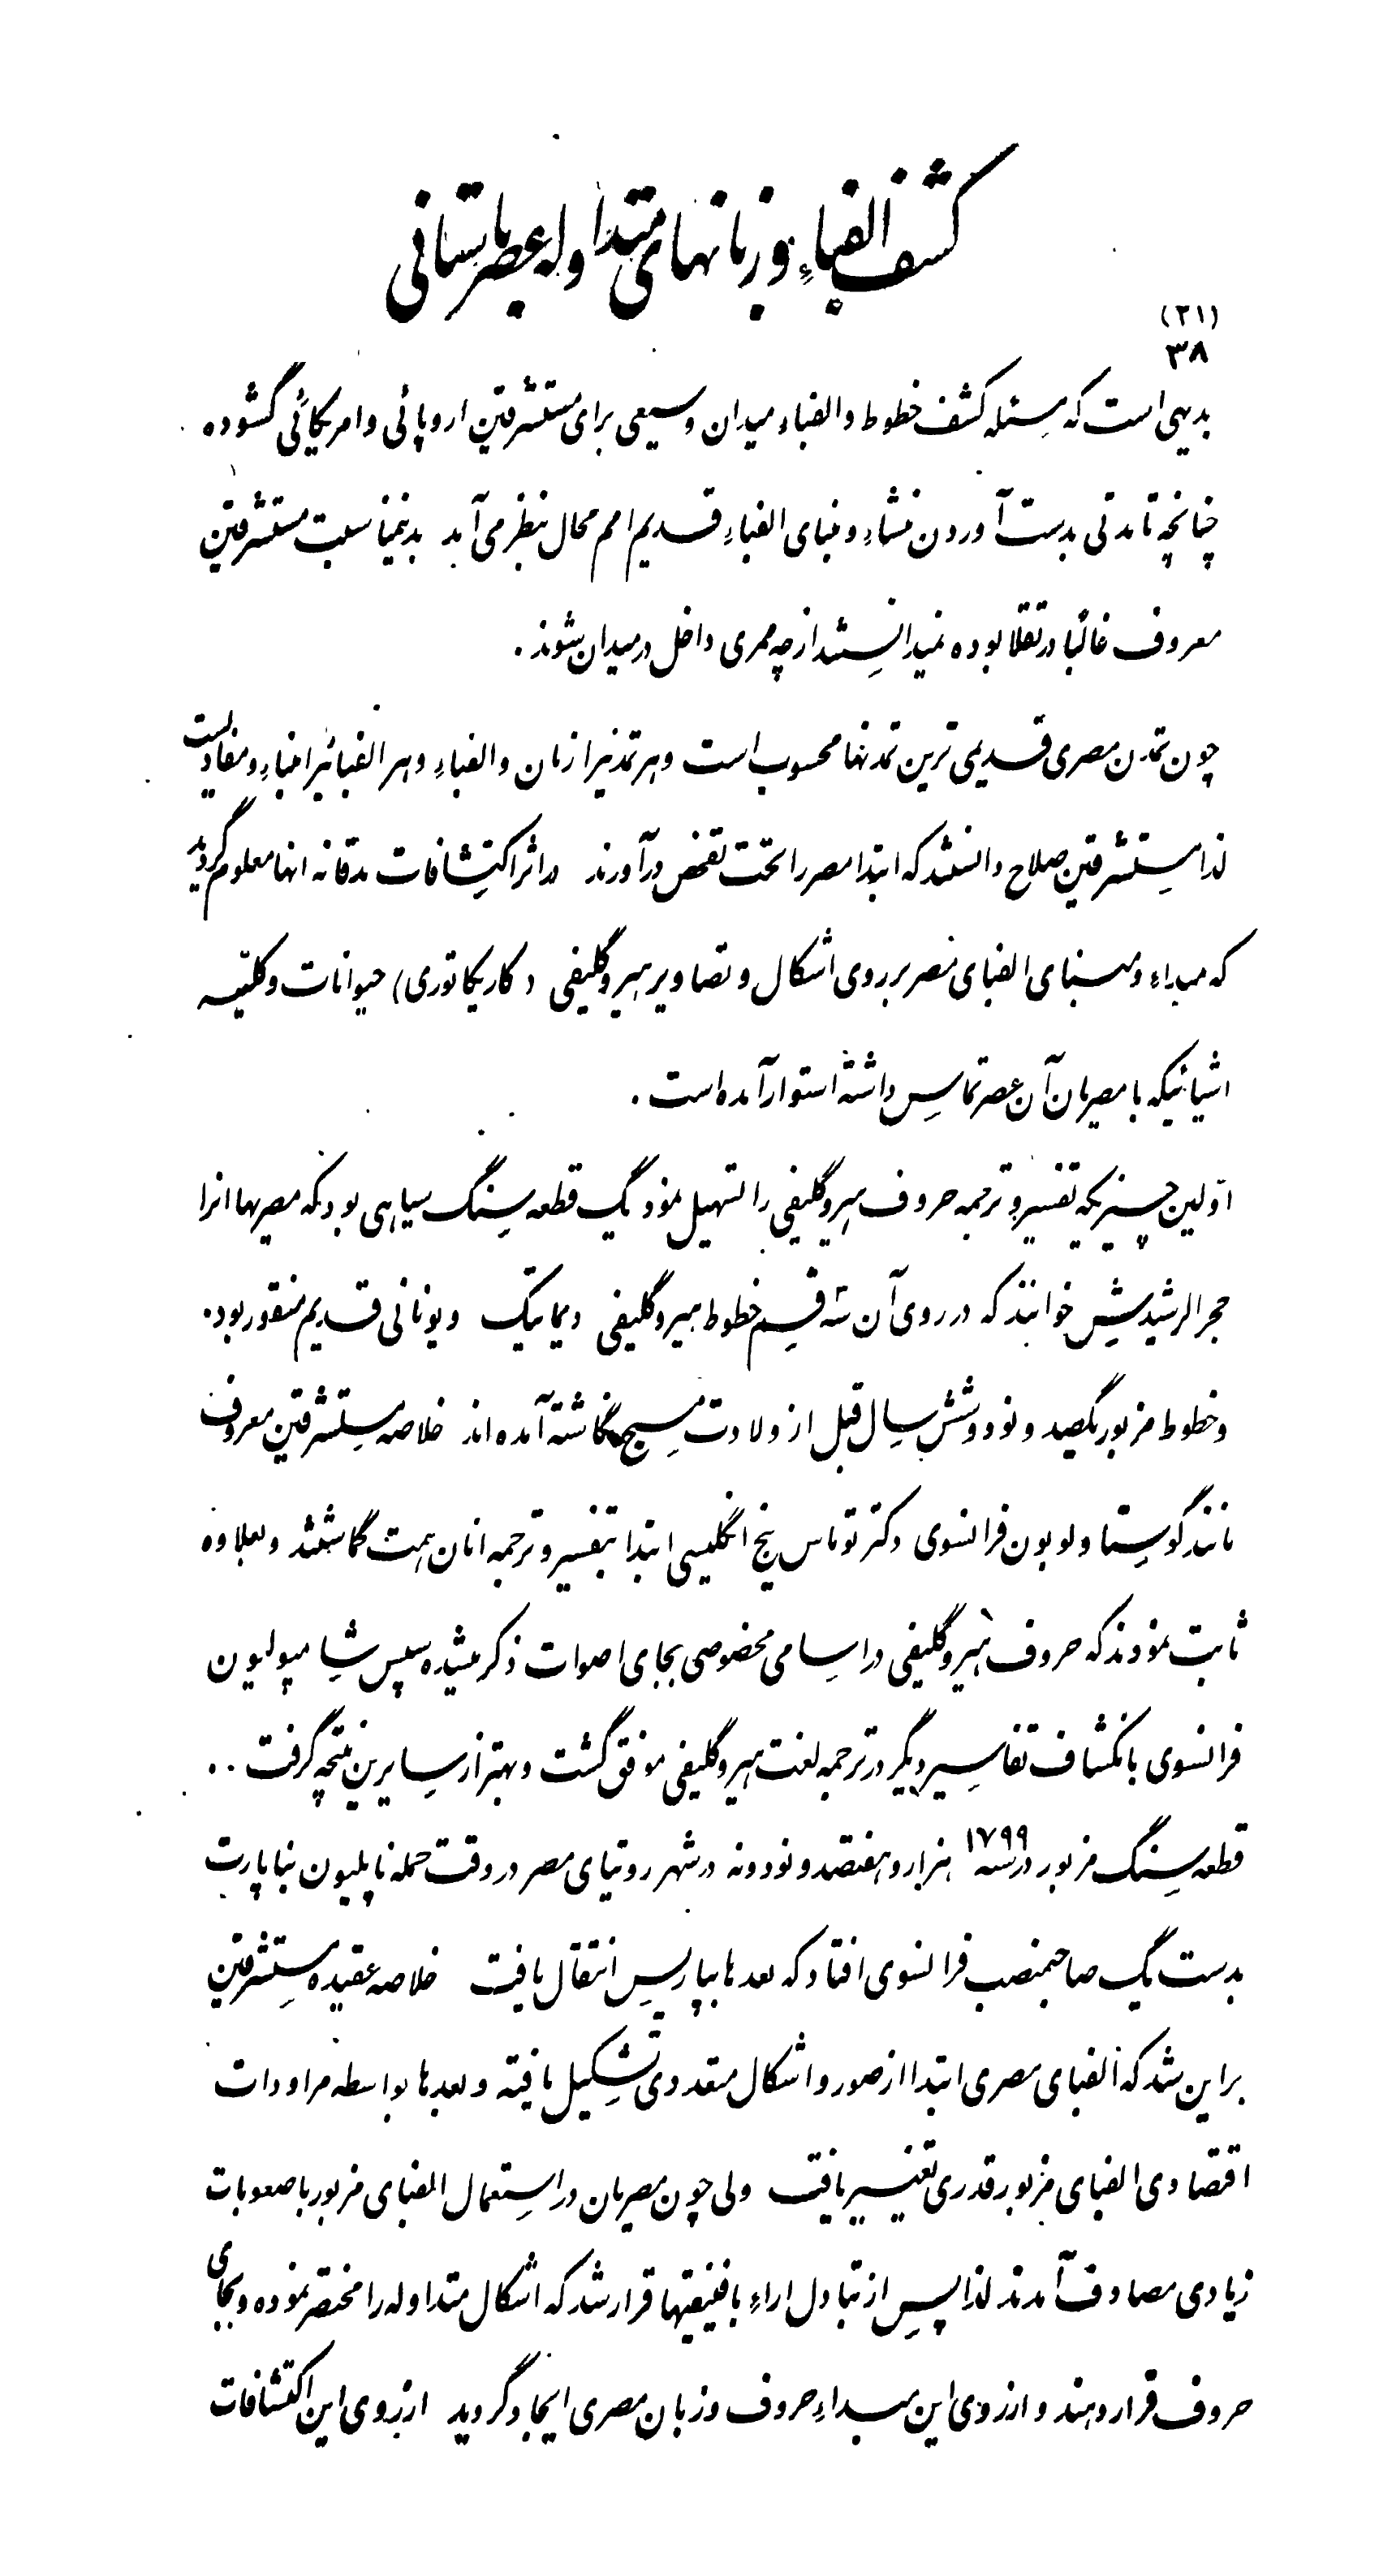 کشف الفباءِ و زبانهای متداوله عصر باستانی
(۳۱)
۳۸
بدیهی است که مسئله کشف خطوط و الفباء میدان وسیعی برای مستشرقین اروپائی و امریکائی گشوده
چنانچه تا مدتی بدست آوردن منشاءِ و مبنای الفباءِ قدیم امم محال بنظر می آمد بدینمناسبت مستشرقین
معروف غالبًا در تقلا بوده نمیدانستند از چه ممری داخل در میدان شوند.
چون تمدن مصری قدیمی ترین تمدنها محسوب است و هر تمدنیرا زبان و الفباءِ و هر الفبائیرا مبناءِ و مفادیست
لذا مستشرقین صلاح دانستند که ابتدا مصر را تحت تفحص درآورند در اثر اکتشافات مدقانه انها معلوم گردید
که مبداءِ و مبنای الفبای مصر بر روی اشکال و تصاویر هیروگلیفی (کاریکاتوری) حیوانات و کلتیه
اشیائیکه با مصریان آن عصر تماس داشته استوار آمده است.
اولین چیزیکه تفسیر و ترجمه حروف هیروگلیفی را تسهیل نمود یک قطعه سنگ سیاهی بود که مصریها انرا
حجر الرشیدش خوانند که در روی آن سه قسم خطوط هیروگلیفی دیماتیک و یونانی قدیم منقور بود.
و خطوط مزبور یکصد و نود و شش سال قبل از ولادت مسیح نگاشته آمده اند خلاصه مستشرقین معروف
مانند گوستاو لوبون فرانسوی دکتر توماس ینج انگلیسی ابتدا بتفسیر و ترجمه انان همت گماشتند و بعلاوه
ثابت نمودند که حروف هیروگلیفی در اسامی مخصوصی بجای اصوات ذکر میشده سپس شامپولیون
فرانسوی بانکشاف تفاسیر دیگر در ترجمه لغت هیروگلیفی موفق گشت و بهتر از سایرین نتیجه گرفت..
قطعه سنگ مزبور در سنه ۱۷۹۹ هزار و هفتصد و نود و نه در شهر روتیای مصر در وقت حمله ناپلیون بناپارت
بدست یک صاحبمنصب فرانسوی افتاد که بعدها بپاریس انتقال یافت خلاصه عقیده مستشرقین
بر این شد که الفبای مصری ابتدا از صور و اشکال متعددی تشکیل یافته و بعدها بواسطه مراودات
اقتصادی الفبای مزبور قدری تغییر یافت ولی چون مصریان در استعمال الفبای مزبور با صعوبات
زیادی مصادف آمدند لذا پس از تبادل اراءِ با فنیقیها قرار شد که اشکال متداوله را مختصر نموده و بجای
حروف قرار دهند و ازروی این مبداءِ حروف و زبان مصری ایجاد گردید ازروی این اکتشافات